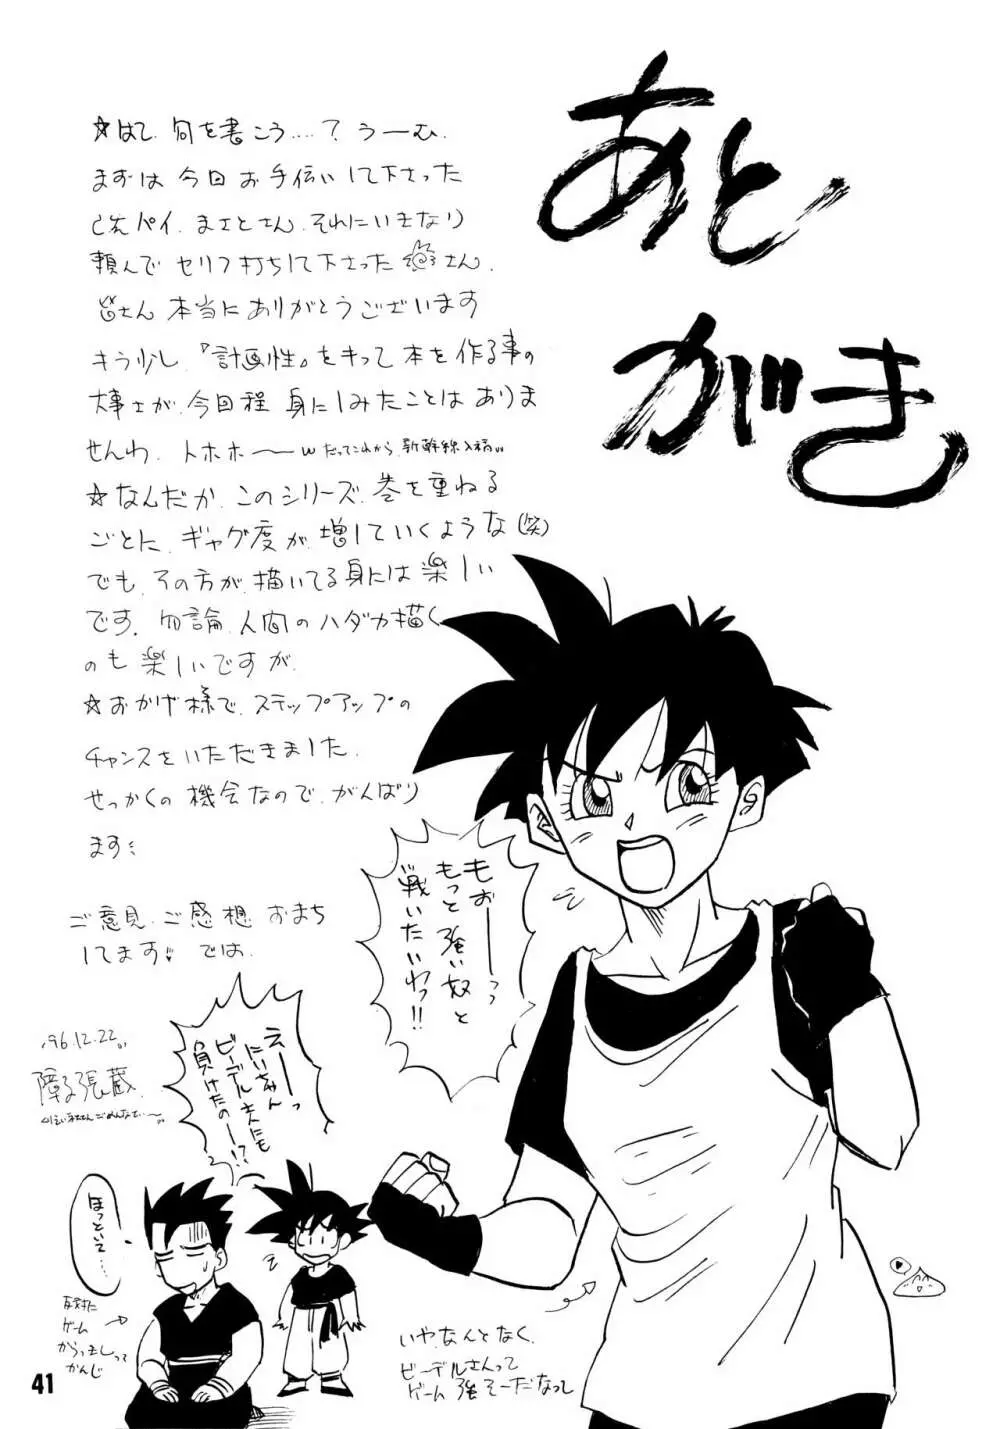 あと
がき
☆はて、何を書こう....?うーむ.
まずは今回お手伝いして下さった
パイ.まさとさん.それにいきなり
頼んでセリフ打ちして下さったさん.
皆さん本当にありがとうございます
もう少し、『計画性』をもって本を作る事の
大事さが、今回程身にしみたことはありま
せんわ.トホホ〜w だってこれから新幹線入稿
☆なんだか、このシリーズ、巻を重ねる
ごとに、ギャグ度が増していくような(笑)
でも、その方が描いてる身には楽しい
です.勿論、人間のハダカ描く
のも楽しいですが.
☆おかげ様で、ステップアップの
チャンスをいただきました.
せっかくの機会なので、がんばり
ます
ご意見、ご感想おまち
してます!!では.
'96.12.22
障子張蔵
もぉーーっっ
もっと強い奴と
戦いたいわっ!!
えーーっ
にいちゃん
ビーデルさんにも
負けたのー!?
ほっといて....
反対に
ゲーム
からっきしって
かんじ
いや、なんとなく、
ビーデルさんって
ゲーム強そーだなって
41